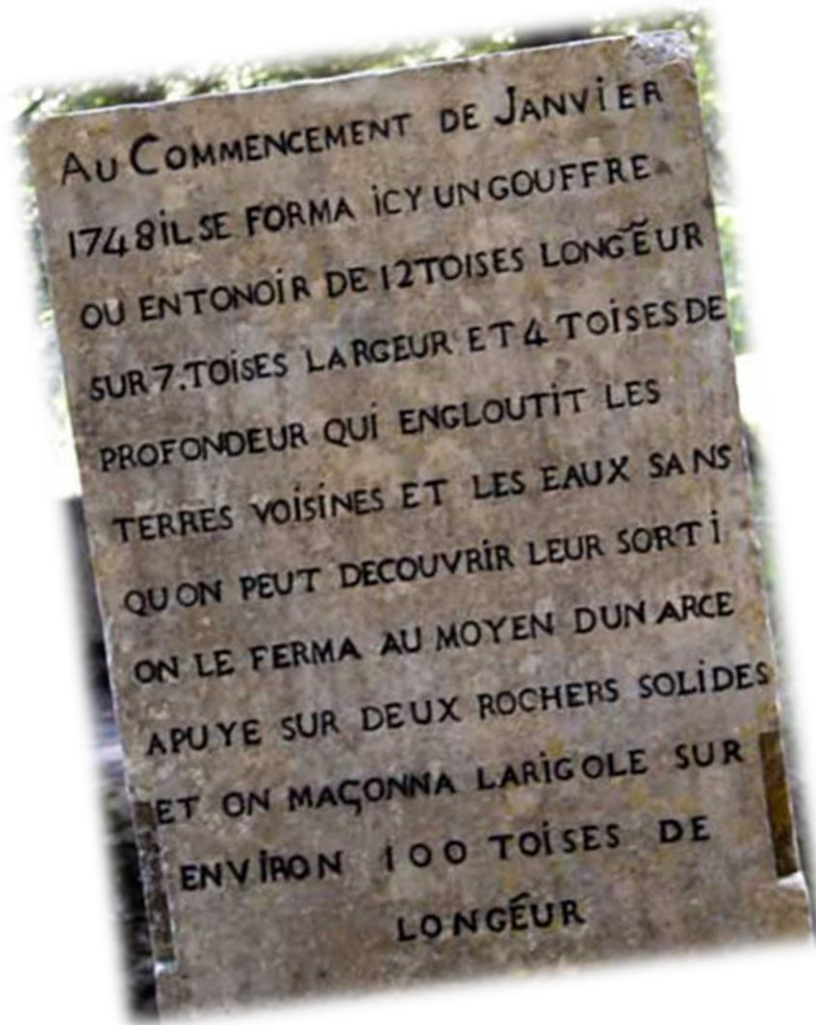 AU COMMENCEMENT DE JANVIER
1748 iL SE FORMA iCY UN GOUFFRE
OU ENTONOiR DE 12 TOISES LONGẼUR
SUR 7. TOiSES LARGEUR ET 4 TOiSES DE
PROFONDEUR QUi ENGLOUTiT LES
TERRES VOiSiNES ET LES EAUX SANS
QUON PEUT DECOUVRiR LEUR SORTi
ON LE FERMA AU MOYEN DUN ARCE
APUYE SUR DEUX ROCHERS SOLiDES
ET ON MAÇONNA LARiGOLE SUR
ENViRON 100 TOiSES DE
LONGÉUR